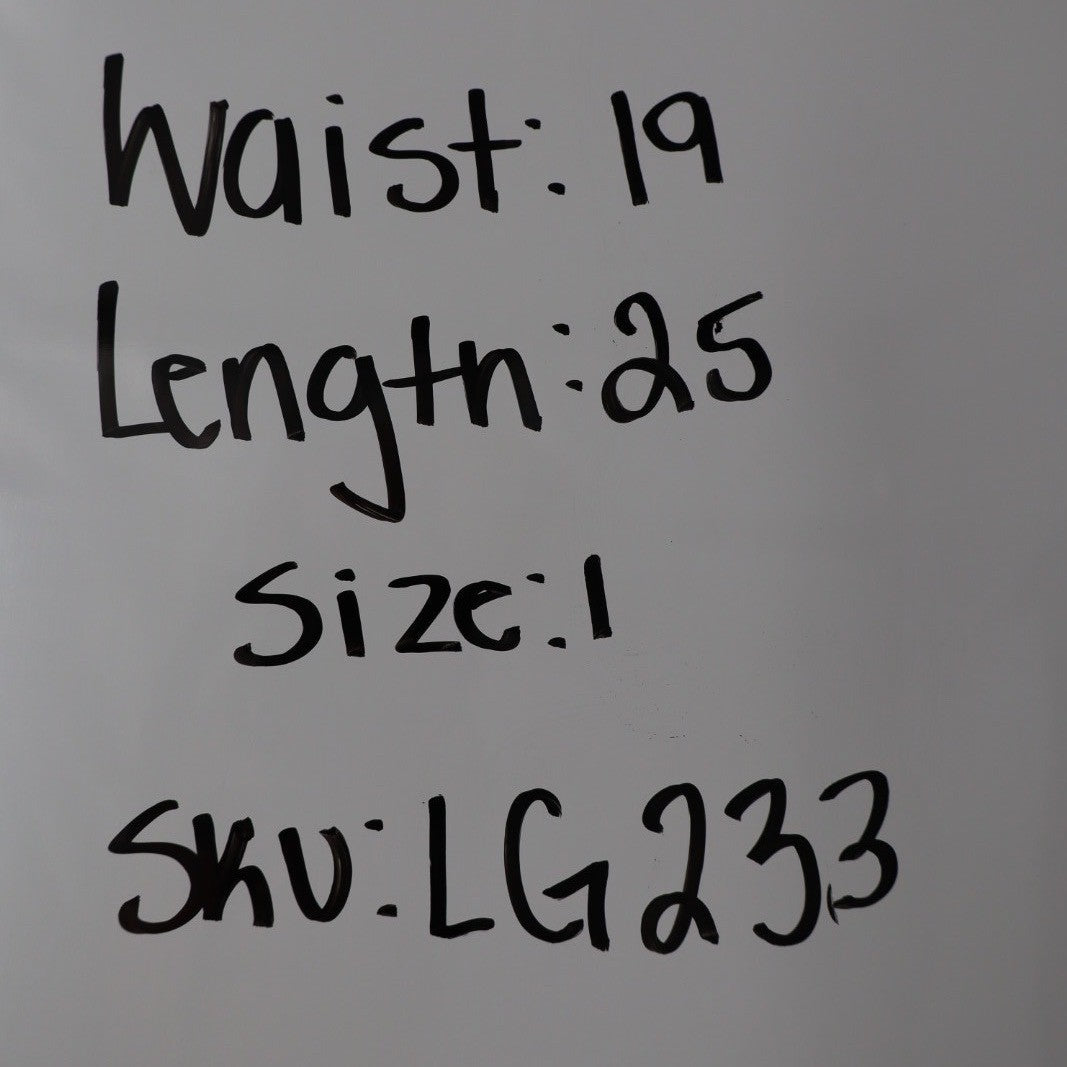 Waist: 19
Length: 25
Size: 1
SKU: LG233